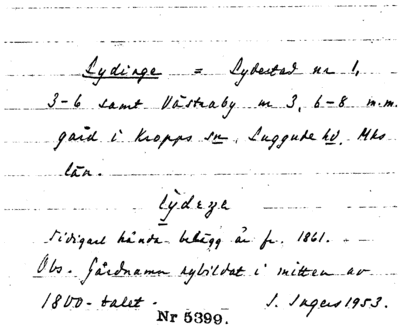 Lydinge = Lybestad nr 1,
3-6 samt Västraby nr 3, 6-8 m.m.
gård i Kropps sn, Luggude hd, Mhs
län.
lydeze
Tidigast kända belägg är fr. 1861.
Obs. Gårdnamn nybildat i mitten av
1800-talet. I. Ingers 1953.
Nr 5399.